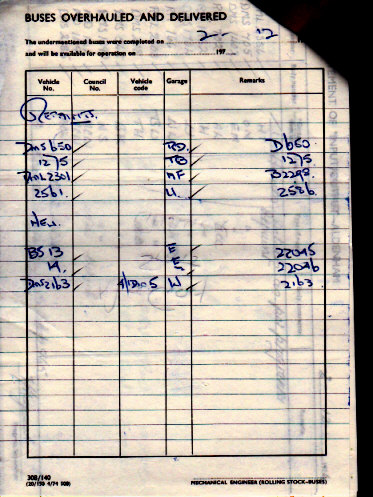 BUSES OVERHAULED AND DELIVERED
The undermentioned buses were completed on 2 - 12
and will be available for operation on 197
Vehicle No. Council No. Vehicle code Garage Remarks
DMS 650 D650
1275 TB 1275
DML2301 AF B2298
2561 2526
NEW.
BS 13 E 22045
14 E 22046
DMS2163 W 2163
308/140
(20/150 4/74 XXB)
MECHANICAL ENGINEER (ROLLING STOCK—BUSES)